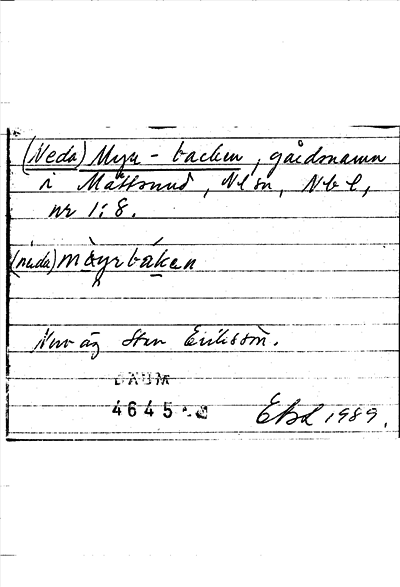 (Neda) Myr-backen, gårdsnamn
i Måttsund, Nl sn, Nbl,
nr 1:8.
(nẹda) mỳrbàkan
Nuv äg Sten Eriksson.
DAUM
4645
EBL 1989.